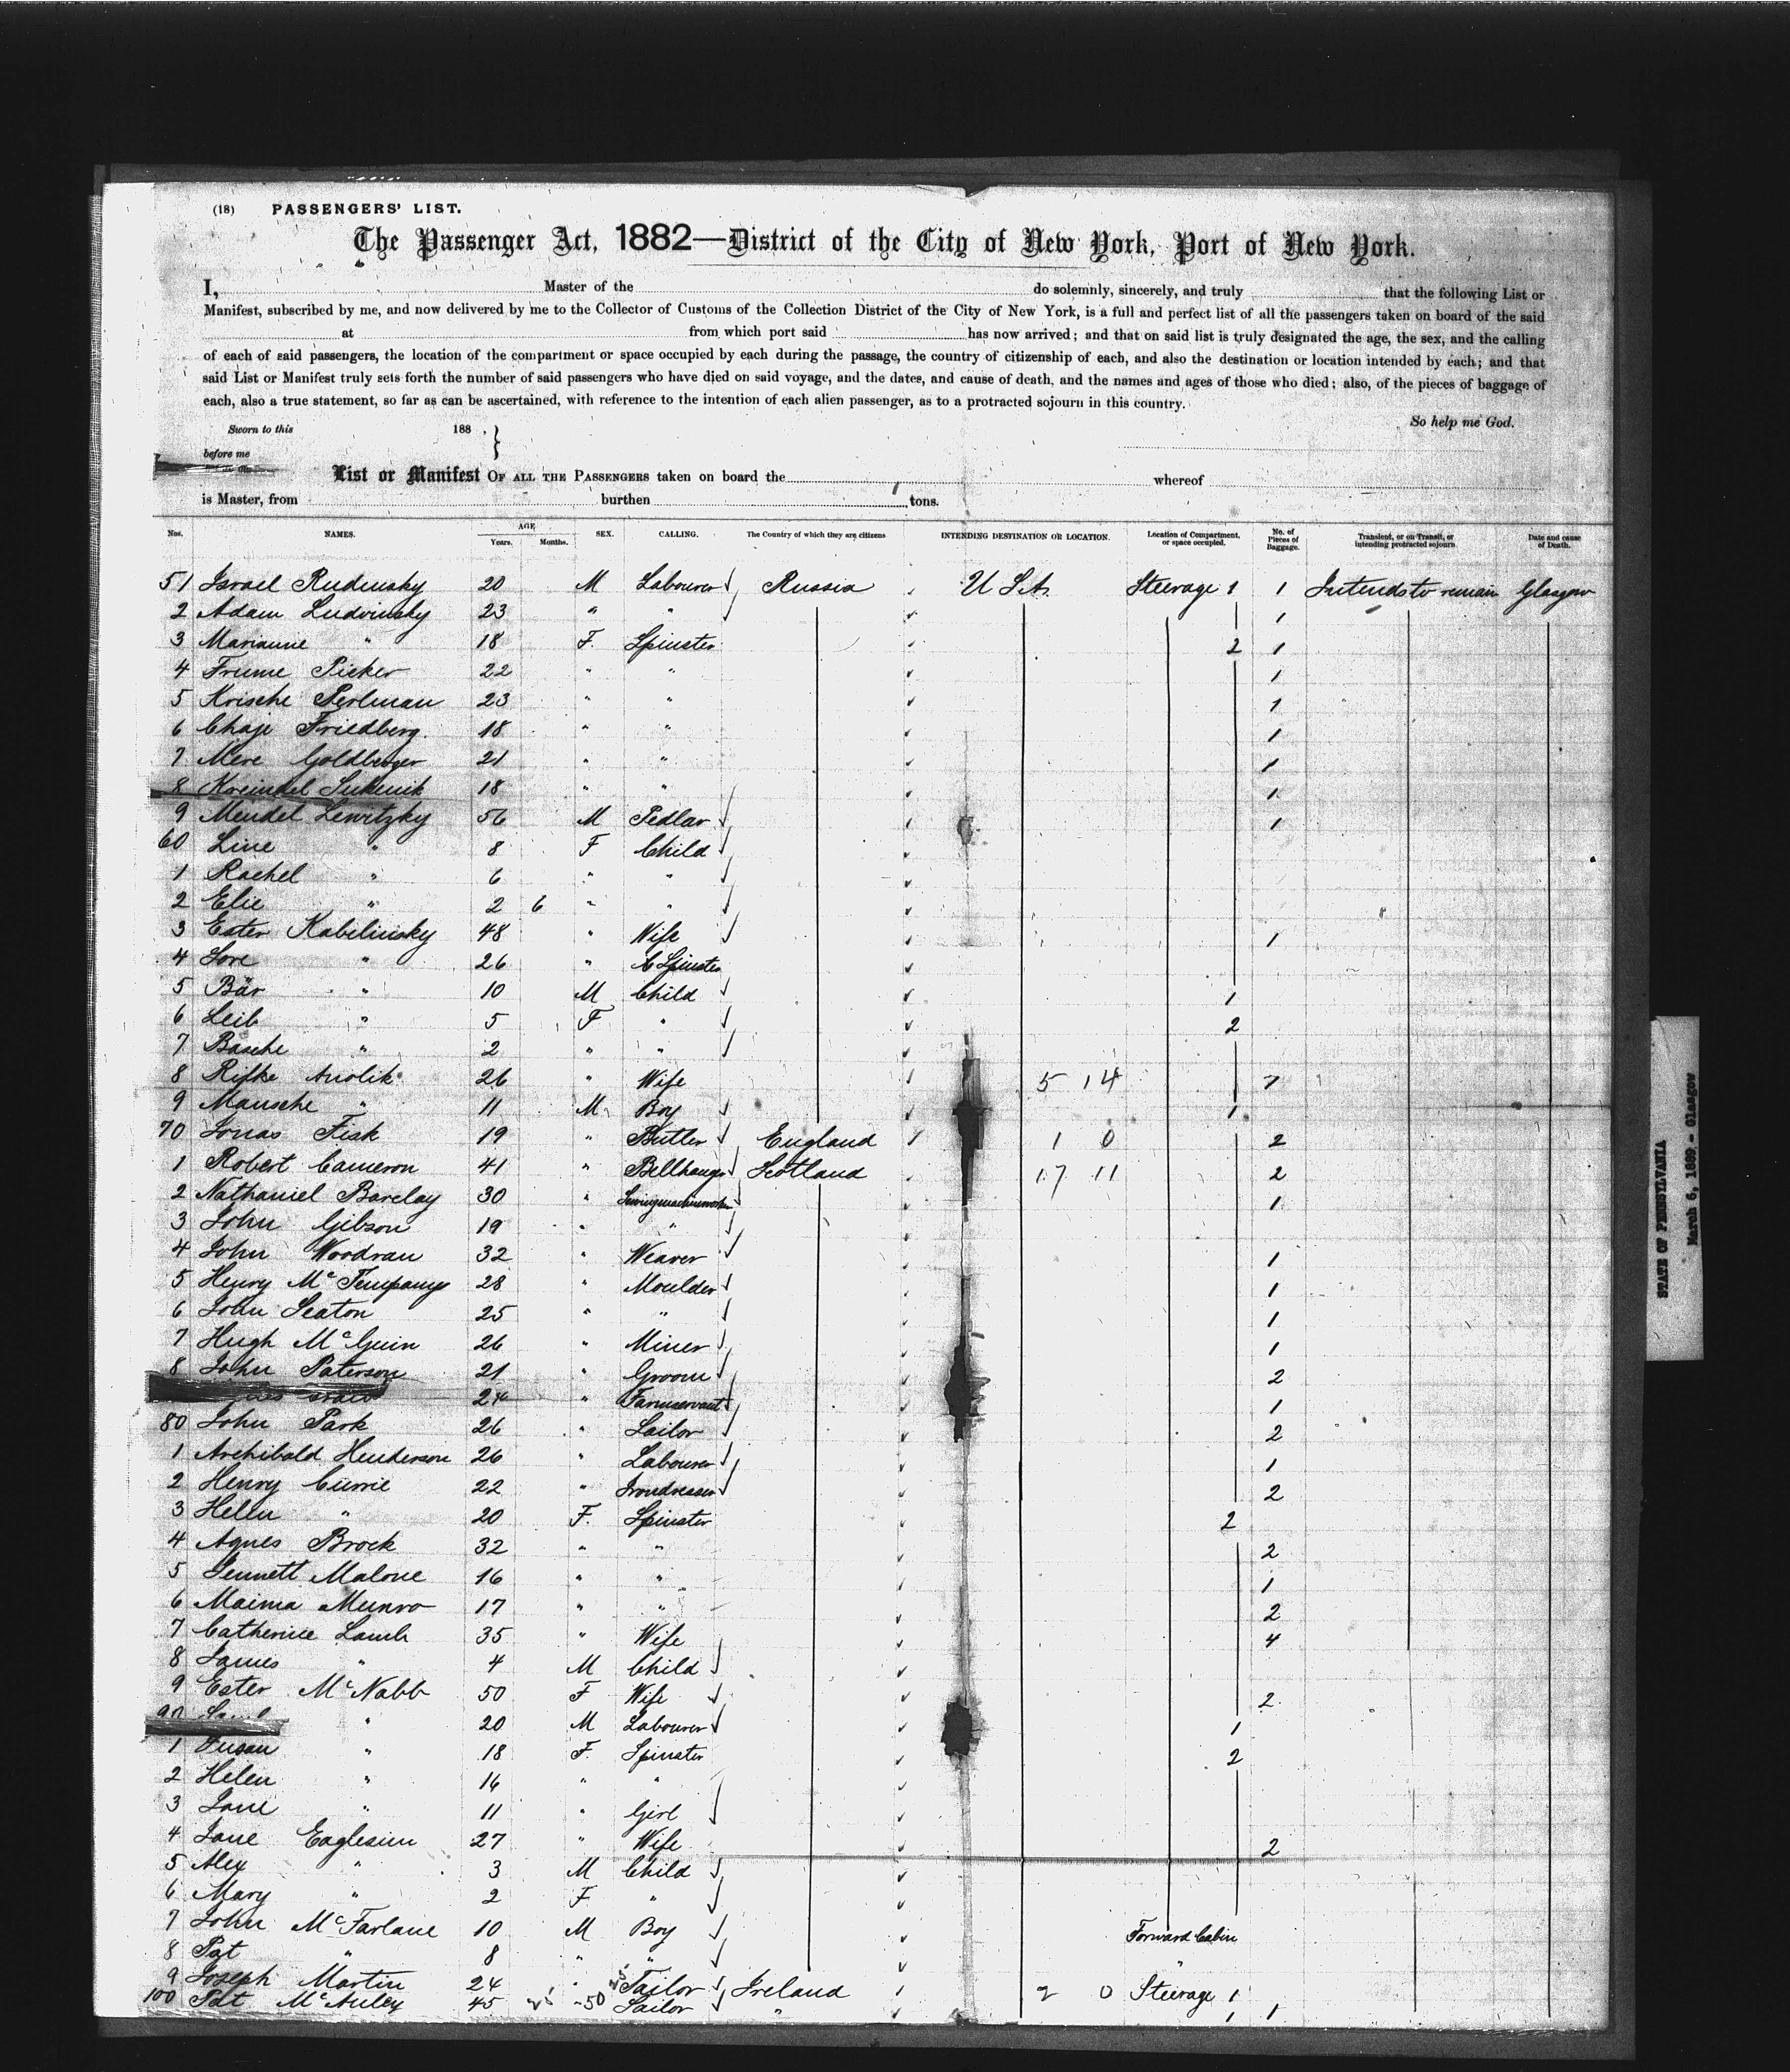 (18) PASSENGERS' LIST.
The Passenger Act, 1882—District of the City of New York, Port of New York.
I, Master of the do solemnly, sincerely, and truly that the following List or
Manifest, subscribed by me, and now delivered by me to the Collector of Customs of the Collection District of the City of New York, is a full and perfect list of all the passengers taken on board of the said
at from which port said has now arrived; and that on said list is truly designated the age, the sex, and the calling
of each of said passengers, the location of the compartment or space occupied by each during the passage, the country of citizenship of each, and also the destination or location intended by each; and that
said List or Manifest truly sets forth the number of said passengers who have died on said voyage, and the dates, and cause of death, and the names and ages of those who died; also, of the pieces of baggage of
each, also a true statement, so far as can be ascertained, with reference to the intention of each alien passenger, as to a protracted sojourn in this country.
So help me God.
Sworn to this 188 .
before me
List or Manifest OF ALL THE PASSENGERS taken on board the whereof
is Master, from burthen tons.
Nos. NAMES. AGE Years. Months. SEX. CALLING. The Country of which they are citizens INTENDING DESTINATION OR LOCATION. Location of Compartment, or space occupied. No. of Pieces of Baggage. Transient, or on Transit, or intending protracted sojourn. Date and cause of Death.
51 Israel Rudensky 20 M Labourer Russia U S A. Steerage 1 1 Intends to remain Glasgow
2 Adam Ludvinsky 23 " " 1
3 Marianne " 18 F. Spinster 2 1
4 Frume Picker 22 " " 1
5 Krische Perlman 23 " " 1
6 Chaje Friedberg. 18 " " 1
7 Mere Goldberger 21 " " 1
8 Kreindel 18 " " 1
9 Mendel Lewitzky 56 M Pedlar 1
60 Line " 8 F Child
1 Rachel " 6 " "
2 Elie " 2 6 " "
3 Ester Kabilinsky 48 " Wife 1
4 Sore " 26 " Spinster
5 Bär " 10 M Child 1
6 Leib " 5 F " 2
7 Basche " 2 " "
8 Rifke Anolik 26 " Wife 5 14 7
9 Mausche " 11 M Boy 1
70 Jonas Fisk 19 " Butler England 1 0 2
1 Robert Cameron 41 " Bellhanger Scotland 17 11 2
2 Nathaniel Barclay 30 " 1
3 John Gibson 19 " "
4 John Woodrau 32 " Weaver 1
5 Henry McTempany 28 " Moulder 1
6 John Seaton 25 " " 1
7 Hugh McGuin 26 " Miner 1
8 John Paterson 21 " Groom 2
24 " Farmservant 1
80 John Park 26 " Sailor 2
1 Archibald Henderson 26 " Labourer 1
2 Henry Currie 22 " Irondresser 2
3 Helen " 20 F. Spinster 2
4 Agnes Brock 32 " " 2
5 Jennett Malone 16 " " 1
6 Maima Munro 17 " " 2
7 Catherine Lamb 35 " Wife 4
8 James " 4 M Child
9 Ester McNabb 50 F Wife 2
90 " 20 M Labourer 1
1 Susan " 18 F. Spinster 2
2 Helen " 14 " "
3 Jane " 11 " Girl
4 Jane Eaglesim 27 " Wife 2
5 Alex " 3 M Child
6 Mary " 2 F "
7 John McFarlane 10 M Boy Forward Cabin
8 Pat " 8 " " "
9 Joseph Martin 24 " Tailor Ireland 2 0 Steerage 1
100 Pat McAuley 45 " 50 Sailor " 1 1
STATE OF PENNSYLVANIA
March 6, 1889 - Glasgow